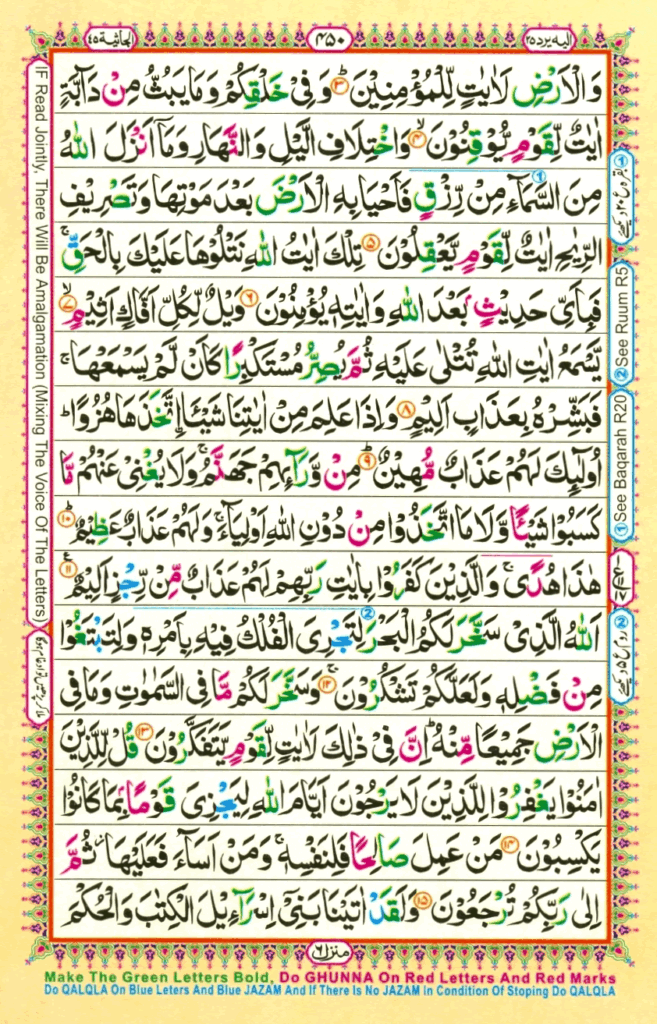 اليه يرد ٢٥
٤٥٠
الجاثية ٤٥
وَالْاَرْضِ لَاٰيٰتٍ لِّلْمُؤْمِنِيْنَ ۝٣ وَفِيْ خَلْقِكُمْ وَمَا يَبُثُّ مِنْ دَآبَّةٍ
اٰيٰتٌ لِّقَوْمٍ يُّوْقِنُوْنَ ۝٤ وَاخْتِلَافِ الَّيْلِ وَالنَّهَارِ وَمَآ اَنْزَلَ اللّٰهُ
مِنَ السَّمَآءِ مِنْ رِّزْقٍ فَاَحْيَا بِهِ الْاَرْضَ بَعْدَ مَوْتِهَا وَتَصْرِيْفِ
الرِّيٰحِ اٰيٰتٌ لِّقَوْمٍ يَّعْقِلُوْنَ ۝٥ تِلْكَ اٰيٰتُ اللّٰهِ نَتْلُوْهَا عَلَيْكَ بِالْحَقِّ ۚ
فَبِاَيِّ حَدِيْثٍۢ بَعْدَ اللّٰهِ وَاٰيٰتِهٖ يُؤْمِنُوْنَ ۝٦ وَيْلٌ لِّكُلِّ اَفَّاكٍ اَثِيْمٍ ۝٧
يَّسْمَعُ اٰيٰتِ اللّٰهِ تُتْلٰى عَلَيْهِ ثُمَّ يُصِرُّ مُسْتَكْبِرًا كَاَنْ لَّمْ يَسْمَعْهَا ۚ
فَبَشِّرْهُ بِعَذَابٍ اَلِيْمٍ ۝٨ وَاِذَا عَلِمَ مِنْ اٰيٰتِنَا شَيْـًٔا اتَّخَذَهَا هُزُوًا ۭ
اُولٰٓئِكَ لَهُمْ عَذَابٌ مُّهِيْنٌ ۝٩ مِنْ وَّرَآئِهِمْ جَهَنَّمُ ۚ وَلَا يُغْنِيْ عَنْهُمْ مَّا
كَسَبُوْا شَيْـًٔا وَّلَا مَا اتَّخَذُوْا مِنْ دُوْنِ اللّٰهِ اَوْلِيَآءَ ۚ وَلَهُمْ عَذَابٌ عَظِيْمٌ ۝١٠
هٰذَا هُدًى ۚ وَالَّذِيْنَ كَفَرُوْا بِاٰيٰتِ رَبِّهِمْ لَهُمْ عَذَابٌ مِّنْ رِّجْزٍ اَلِيْمٌ ۝١١
اَللّٰهُ الَّذِيْ سَخَّرَ لَكُمُ الْبَحْرَ لِتَجْرِيَ الْفُلْكُ فِيْهِ بِاَمْرِهٖ وَلِتَبْتَغُوْا
مِنْ فَضْلِهٖ وَلَعَلَّكُمْ تَشْكُرُوْنَ ۝١٢ وَسَخَّرَ لَكُمْ مَّا فِي السَّمٰوٰتِ وَمَا فِي
الْاَرْضِ جَمِيْعًا مِّنْهُ ۭ اِنَّ فِيْ ذٰلِكَ لَاٰيٰتٍ لِّقَوْمٍ يَّتَفَكَّرُوْنَ ۝١٣ قُلْ لِّلَّذِيْنَ
اٰمَنُوْا يَغْفِرُوْا لِلَّذِيْنَ لَا يَرْجُوْنَ اَيَّامَ اللّٰهِ لِيَجْزِيَ قَوْمًۢا بِمَا كَانُوْا
يَكْسِبُوْنَ ۝١٤ مَنْ عَمِلَ صَالِحًا فَلِنَفْسِهٖ ۚ وَمَنْ اَسَآءَ فَعَلَيْهَا ۡ ثُمَّ
اِلٰى رَبِّكُمْ تُرْجَعُوْنَ ۝١٥ وَلَقَدْ اٰتَيْنَا بَنِيْٓ اِسْرَآءِيْلَ الْكِتٰبَ وَالْحُكْمَ
منزل ٦
IF Read Jointly, There Will Be Amalgamation (Mixing The Voice Of The Letters)
② See Ruum R5
① See Baqarah R20
Make The Green Letters Bold, Do GHUNNA On Red Letters And Red Marks
Do QALQLA On Blue Leters And Blue JAZAM And If There Is No JAZAM In Condition Of Stoping Do QALQLA